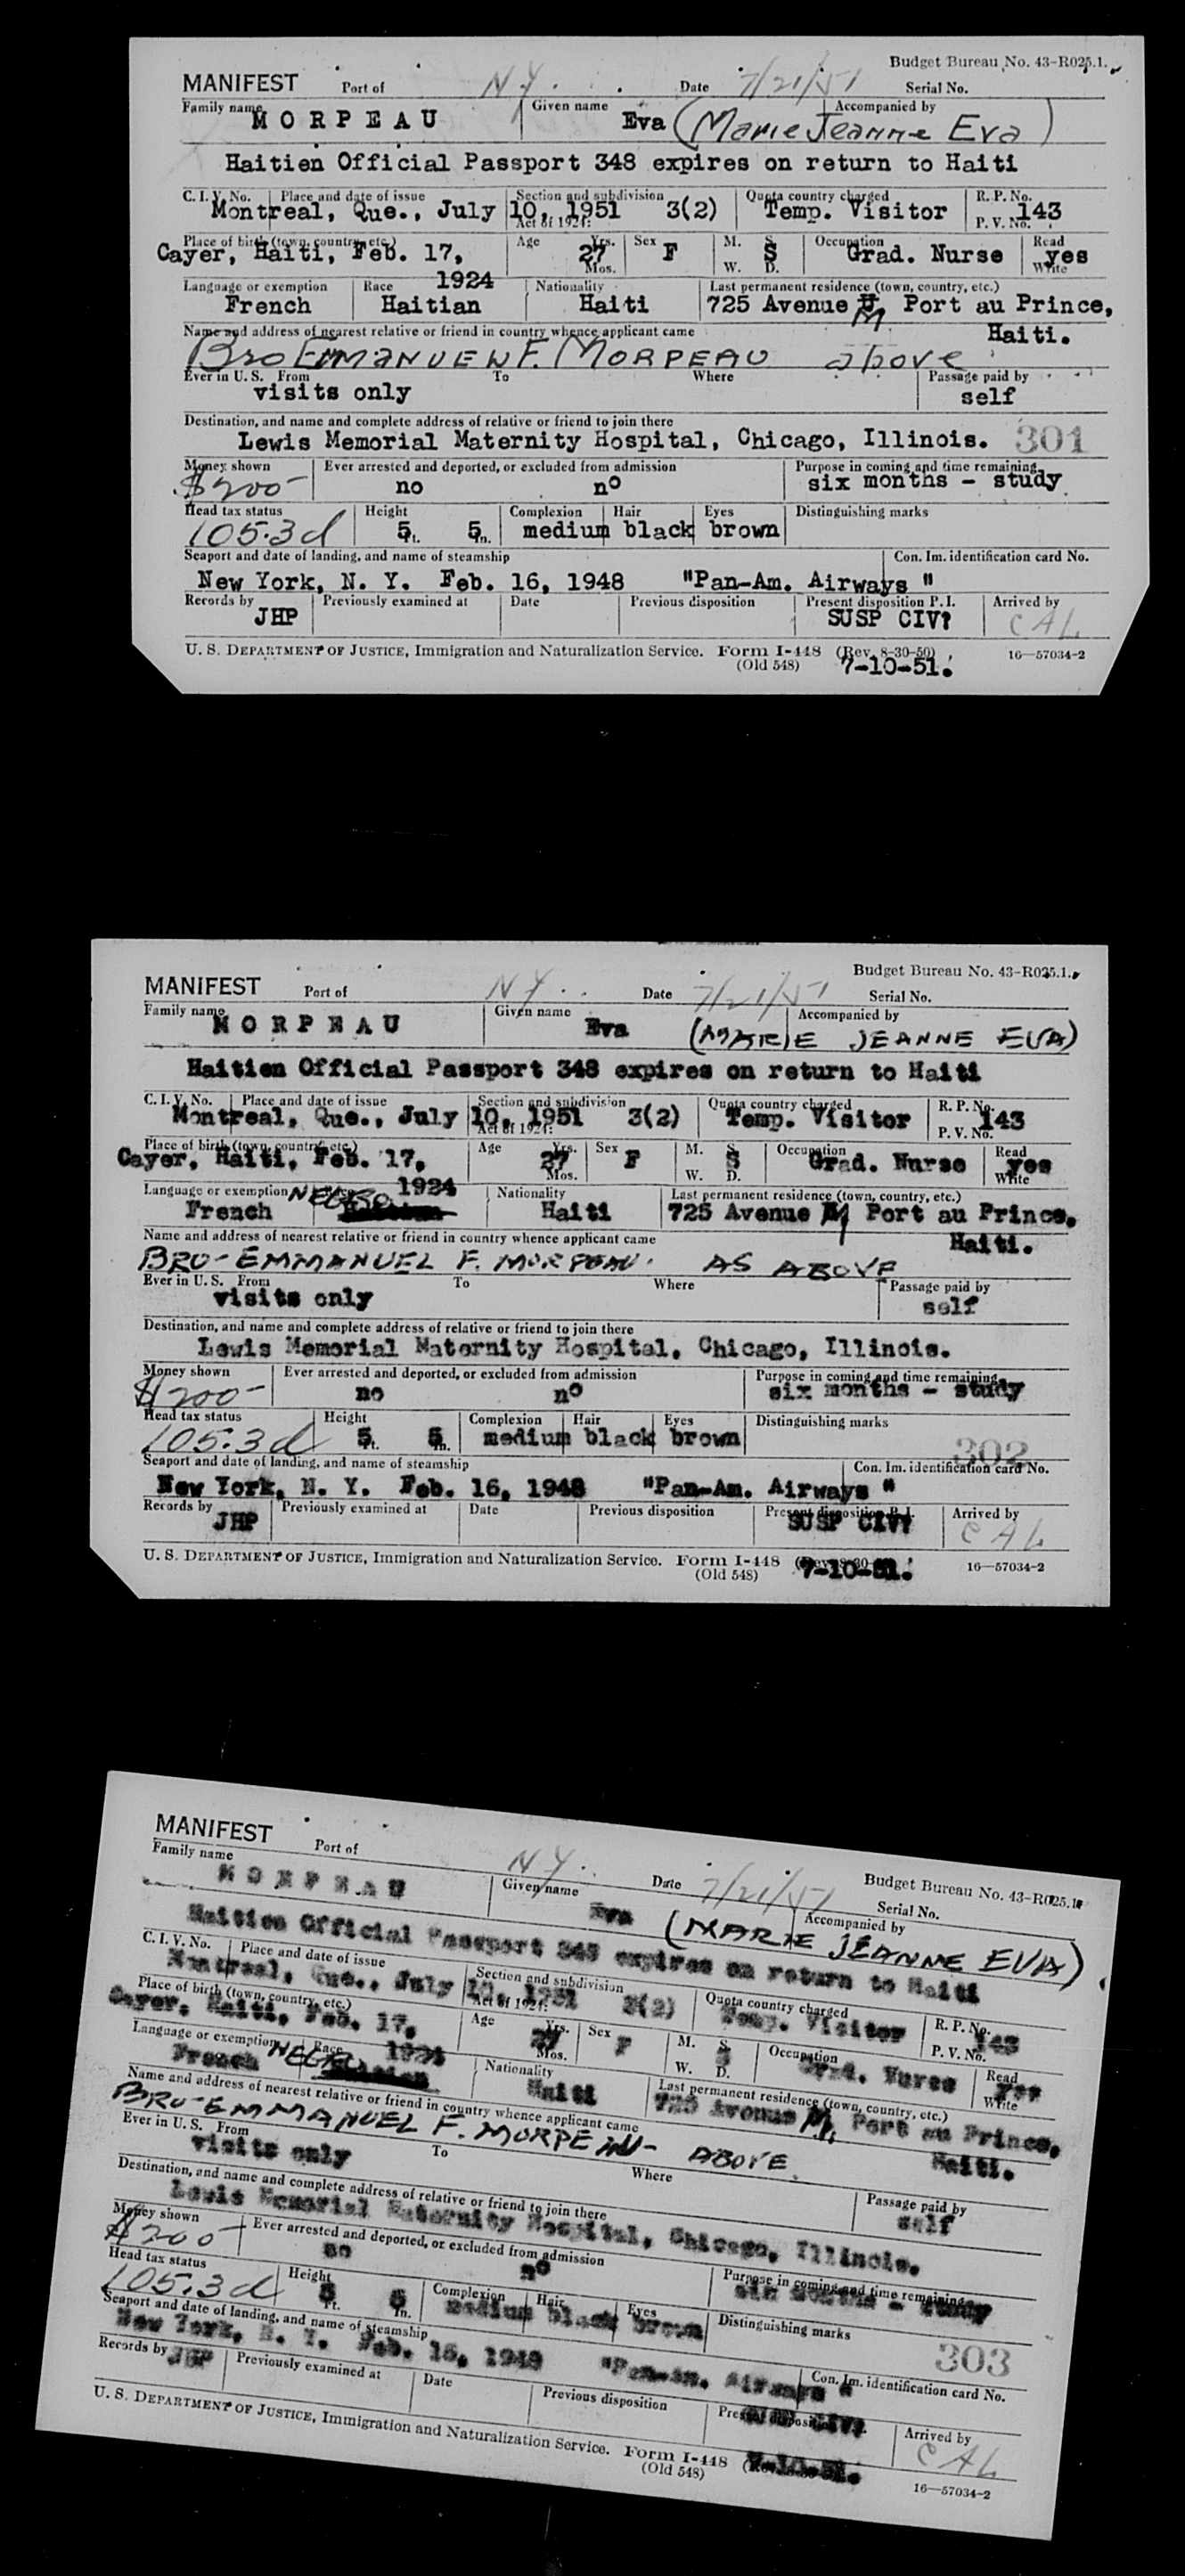 Budget Bureau No. 43-R025.1.
MANIFEST Port of N.Y. Date 7/21/51 Serial No.
Family name Given name Accompanied by
MORPEAU Eva (Marie Jeanne Eva)
Haitien Official Passport 348 expires on return to Haiti
C. I. V. No. Place and date of issue Section and subdivision Quota country charged R. P. No.
Montreal, Que., July 10, 1951 3(2) Temp. Visitor 143
Act of 1924: P. V. No.
Place of birth (town, country, etc.) Age Yrs. Sex M. S. Occupation Read
Cayer, Haiti, Feb. 17, 27 F S Grad. Nurse yes
Mos. W. D. Write
1924
Language or exemption Race Nationality Last permanent residence (town, country, etc.)
French Haitian Haiti 725 Avenue M, Port au Prince,
Name and address of nearest relative or friend in country whence applicant came Haiti.
Bro EMMANUEL F. MORPEAU above
Ever in U. S. From To Where Passage paid by
visits only self
Destination, and name and complete address of relative or friend to join there
Lewis Memorial Maternity Hospital, Chicago, Illinois. 301
Money shown Ever arrested and deported, or excluded from admission Purpose in coming and time remaining
$200- no no six months - study
Head tax status Height Complexion Hair Eyes Distinguishing marks
105.3d 5 Ft. 5 In. medium black brown
Seaport and date of landing, and name of steamship Con. Im. identification card No.
New York, N. Y. Feb. 16, 1948 "Pan-Am. Airways "
Records by Previously examined at Date Previous disposition Present disposition P. I. Arrived by
JHP SUSP CIV? CAL
U. S. DEPARTMENT OF JUSTICE, Immigration and Naturalization Service. Form I-448 (Rev. 8-30-50) 16—57034-2
(Old 548) 7-10-51.
Budget Bureau No. 43-R025.1.
MANIFEST Port of N.Y. Date 7/21/51 Serial No.
Family name Given name Accompanied by
MORPEAU Eva (MARIE JEANNE EVA)
Haitien Official Passport 348 expires on return to Haiti
C. I. V. No. Place and date of issue Section and subdivision Quota country charged R. P. No.
Montreal, Que., July 10, 1951 3(2) Temp. Visitor 143
Act of 1924: P. V. No.
Place of birth (town, country, etc.) Age Yrs. Sex M. S. Occupation Read
Cayer, Haiti, Feb. 17, 27 F S Grad. Nurse yes
Mos. W. D. Write
Language or exemption NEGRO 1924 Nationality Last permanent residence (town, country, etc.)
French Haitian Haiti 725 Avenue M Port au Prince,
Name and address of nearest relative or friend in country whence applicant came Haiti.
BRO-EMMANUEL F. MORPEAU. AS ABOVE
Ever in U. S. From To Where Passage paid by
visits only self
Destination, and name and complete address of relative or friend to join there
Lewis Memorial Maternity Hospital, Chicago, Illinois.
Money shown Ever arrested and deported, or excluded from admission Purpose in coming and time remaining
$200- no no six months - study
Head tax status Height Complexion Hair Eyes Distinguishing marks
105.3d 5 Ft. 5 In. medium black brown 302
Seaport and date of landing, and name of steamship Con. Im. identification card No.
New York, N. Y. Feb. 16, 1948 "Pan-Am. Airways "
Records by Previously examined at Date Previous disposition Present disposition P. I. Arrived by
JHP SUSP CIV? CAL
U. S. DEPARTMENT OF JUSTICE, Immigration and Naturalization Service. Form I-448 16—57034-2
(Old 548) 7-10-51.
MANIFEST Port of N.Y. Date 7/21/51 Budget Bureau No. 43-R025.1
Serial No.
Family name Given name Accompanied by
MORPEAU Eva (MARIE JEANNE EVA)
Haitien Official Passport 348 expires on return to Haiti
C. I. V. No. Place and date of issue Section and subdivision Quota country charged R. P. No.
Montreal, Que., July 10, 1951 3(2) Temp. Visitor 143
Act of 1924: P. V. No.
Place of birth (town, country, etc.) Age Yrs. Sex M. S. Occupation Read
Cayer, Haiti, Feb. 17, 27 F S Grad. Nurse yes
Mos. W. D. Write
Language or exemption NEGRO Race 1924 Nationality Last permanent residence (town, country, etc.)
French Haitian Haiti 725 Avenue M, Port au Prince,
Name and address of nearest relative or friend in country whence applicant came Haiti.
BRO-EMMANUEL F. MORPEAU- ABOVE
Ever in U. S. From To Where Passage paid by
visits only self
Destination, and name and complete address of relative or friend to join there
Lewis Memorial Maternity Hospital, Chicago, Illinois.
Money shown Ever arrested and deported, or excluded from admission Purpose in coming and time remaining
$200- no no six months - study
Head tax status Height Complexion Hair Eyes Distinguishing marks
105.3d 5 Ft. 5 In. medium black brown 303
Seaport and date of landing, and name of steamship Con. Im. identification card No.
New York, N. Y. Feb. 16, 1948 "Pan-Am. Airways "
Records by Previously examined at Date Previous disposition Present disposition Arrived by
JHP CAL
U. S. DEPARTMENT OF JUSTICE, Immigration and Naturalization Service. Form I-448 16—57034-2
(Old 548) 7-10-51.